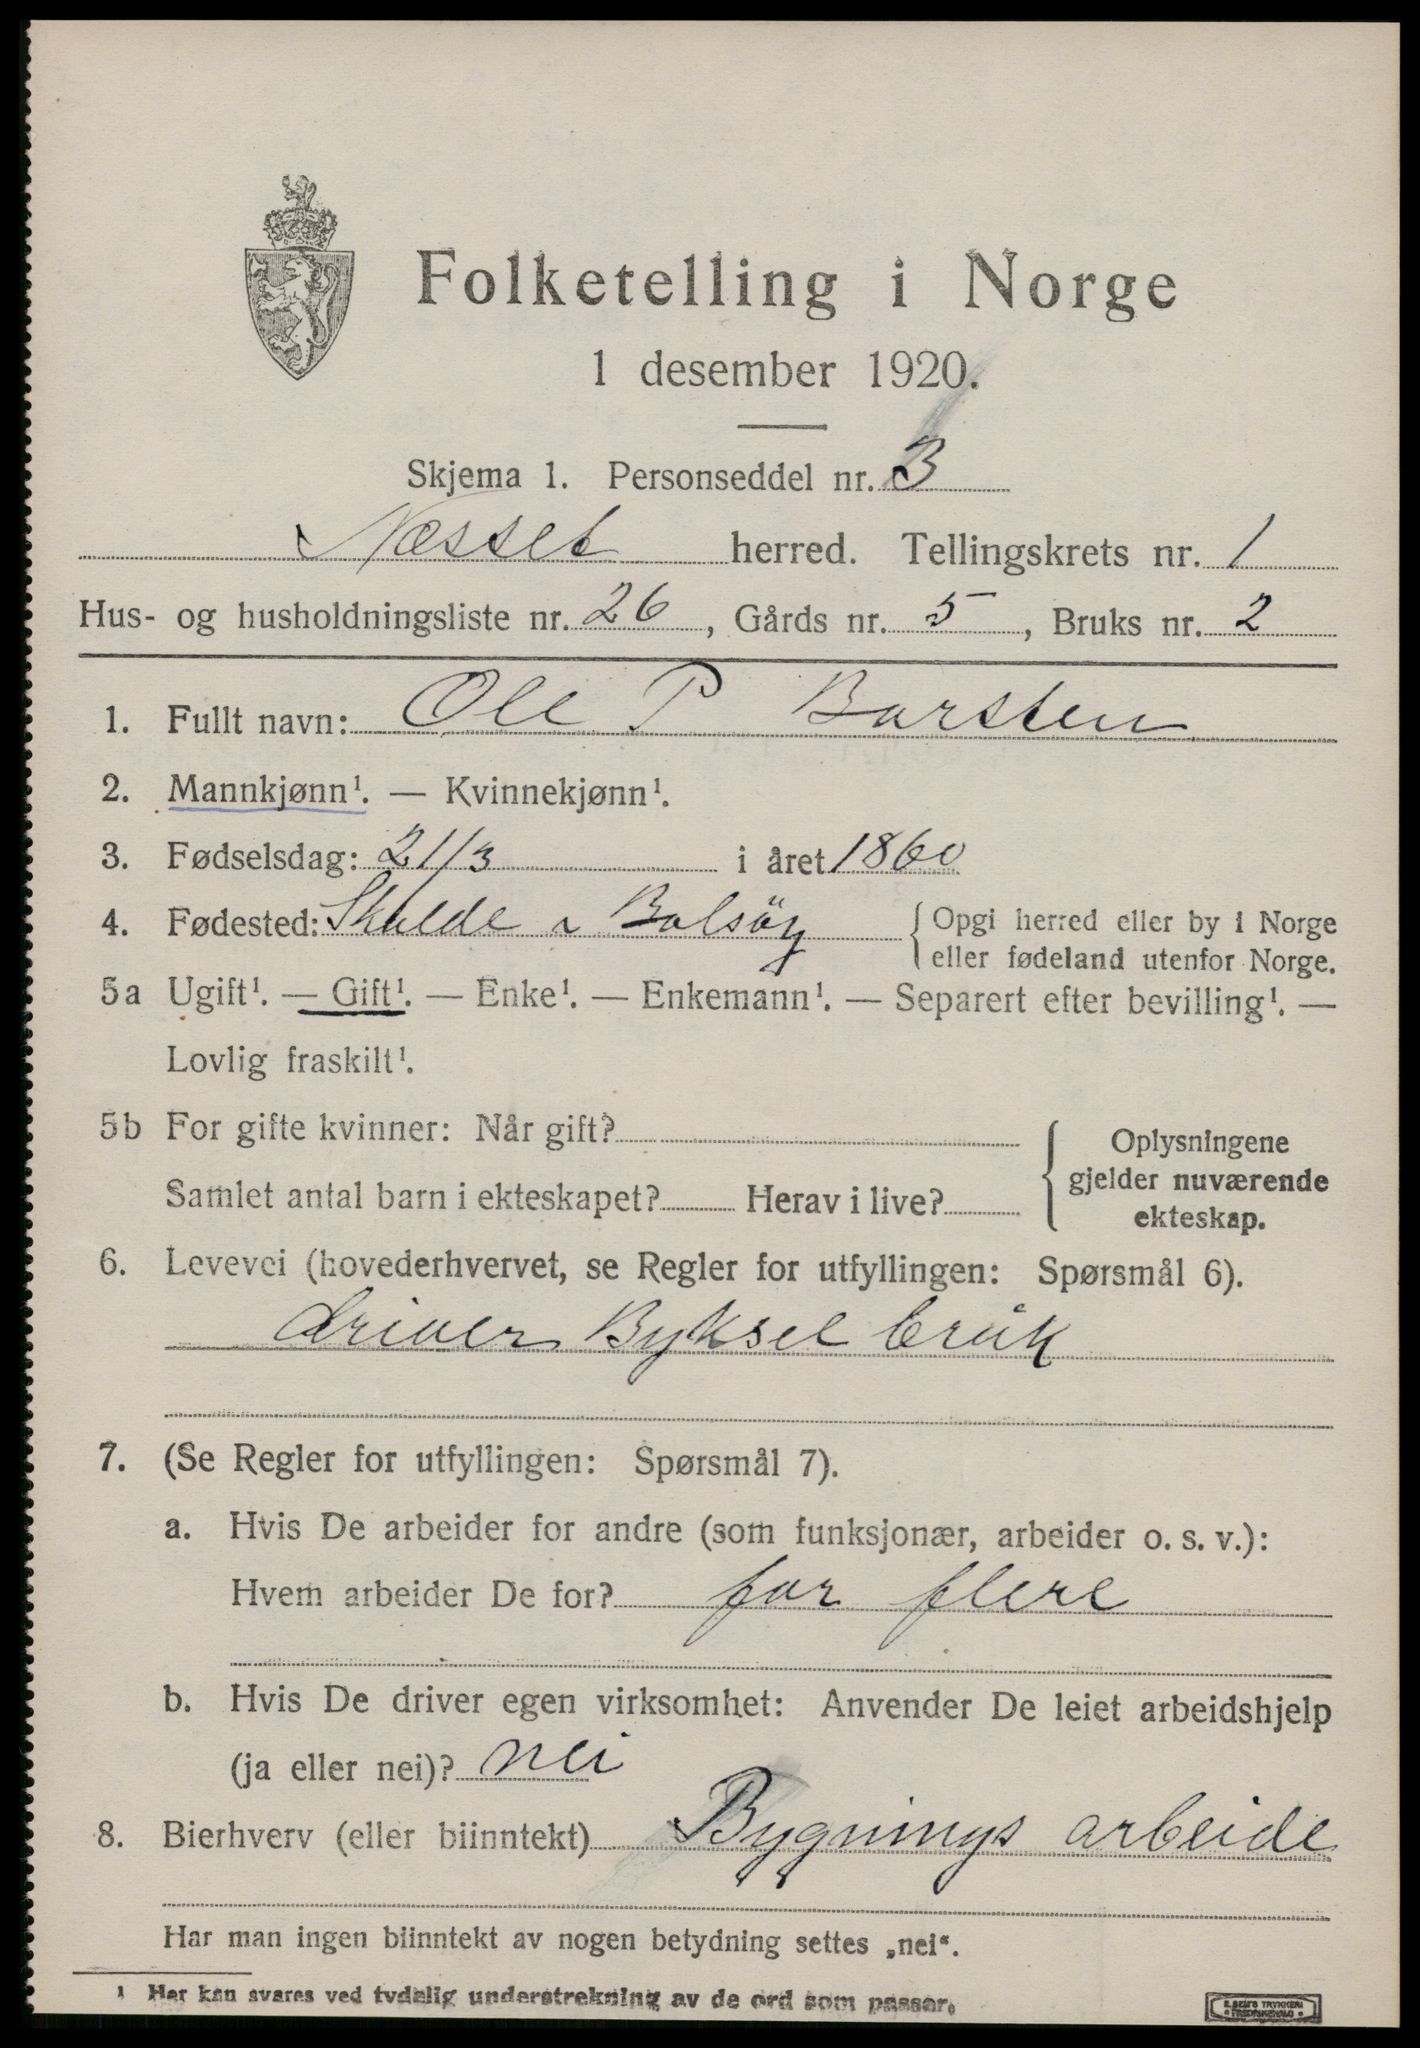 Folketelling i Norge
1 desember 1920.
Skjema 1. Personseddel nr. 3
Næsset herred. Tellingskrets nr. 1
Hus- og husholdningsliste nr. 26, Gårds nr. 5, Bruks nr. 2
1. Fullt navn: Ole P Barsten
2. Mannkjønn¹. — Kvinnekjønn¹.
3. Fødselsdag: 21/3 i året 1860
4. Fødested: Skalde Bolsöy { Opgi herred eller by i Norge
eller fødeland utenfor Norge.
5a Ugift¹. — Gift¹. — Enke¹. — Enkemann¹. — Separert efter bevilling¹. —
Lovlig fraskilt¹.
5b For gifte kvinner: Når gift?
Samlet antal barn i ekteskapet? Herav i live?
{ Oplysningene
gjelder nuværende
ekteskap.
6. Levevei (hovederhvervet, se Regler for utfyllingen: Spørsmål 6).
driver Byksel bruk
7. (Se Regler for utfyllingen: Spørsmål 7).
a. Hvis De arbeider for andre (som funksjonær, arbeider o. s. v.):
Hvem arbeider De for? for flere
b. Hvis De driver egen virksomhet: Anvender De leiet arbeidshjelp
(ja eller nei)? nei
8. Bierhverv (eller biinntekt) Bygnings arbeide
Har man ingen biinntekt av nogen betydning settes „nei“.
¹ Her kan svares ved tydelig understrekning av de ord som passer.
E. SEM'S TRYKKERI
FREDRIKSHALD